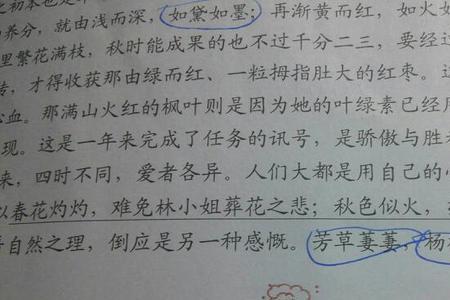 养分，就由浅而深，如黛如墨；再渐黄而红，如火如
里繁花满枝，秋时能成果的也不过千分二三，要经过
才得收获那由绿而红、一粒拇指肚大的红枣。
血。那满山火红的枫叶则是因为她的叶绿素已经用
现。这是一年来完成了任务的讯号，是骄傲与胜
来，四时不同，爱者各异。人们大都是用自己的
以春花灼灼，难免林小姐葬花之悲；秋色似火，
自然之理，倒应是另一种感慨。芳草萋萋，杨